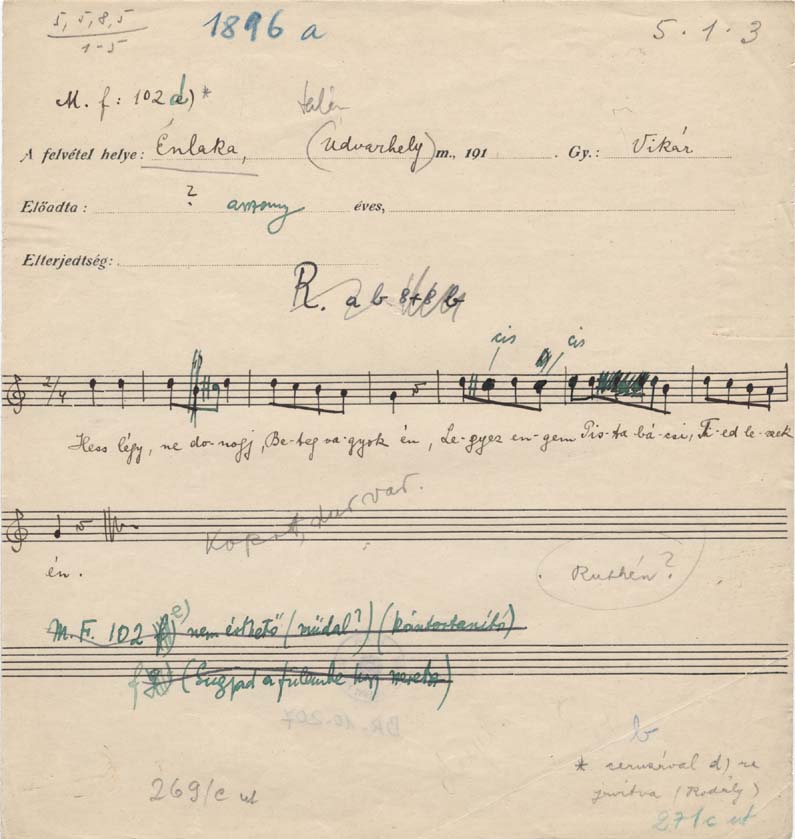 5, 5, 8, 5
1-5
1896 a
5 · 1 · 3
M. f: 102 d) *
talán
A felvétel helye: Énlaka, (Udvarhely) m., 191 . Gy.: Vikár
Előadta: ? asszony éves,
Elterjedtség:
R. a b 8+8 b
cis cis
2/4
Hess légy, ne do-nogj, Be-teg va-gyok én, Le-gyez en-gem Pis-ta bá-csi, Ti-ed le-szek
Kopott, dur var.
én.
Ruthén?
M. F. 102 e) nem érthető (műdal?) (kántortanító)
f) (Sugjad a fulembe hogy szeretsz)
BR. 10.207
b
269/c ut
* ceruzával d) re
javítva (Kodály)
271/c ut